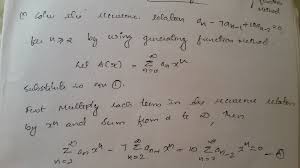 function
method
① Solve the recurrence relation aₙ - 7aₙ₋₁ + 10aₙ₋₂
for n≥2 by using generating function method.
Let A(x) = ∞Σn=0 aₙ xⁿ
Substitute in eqn ①.
First Multiply each term in the recurrence relation
by xⁿ and sum from 2 to ∞, then
∞Σn=2 aₙxⁿ - 7 ∞Σn=2 aₙ₋₁ xⁿ + 10 ∞Σn=2 aₙ₋₂ xⁿ = 0